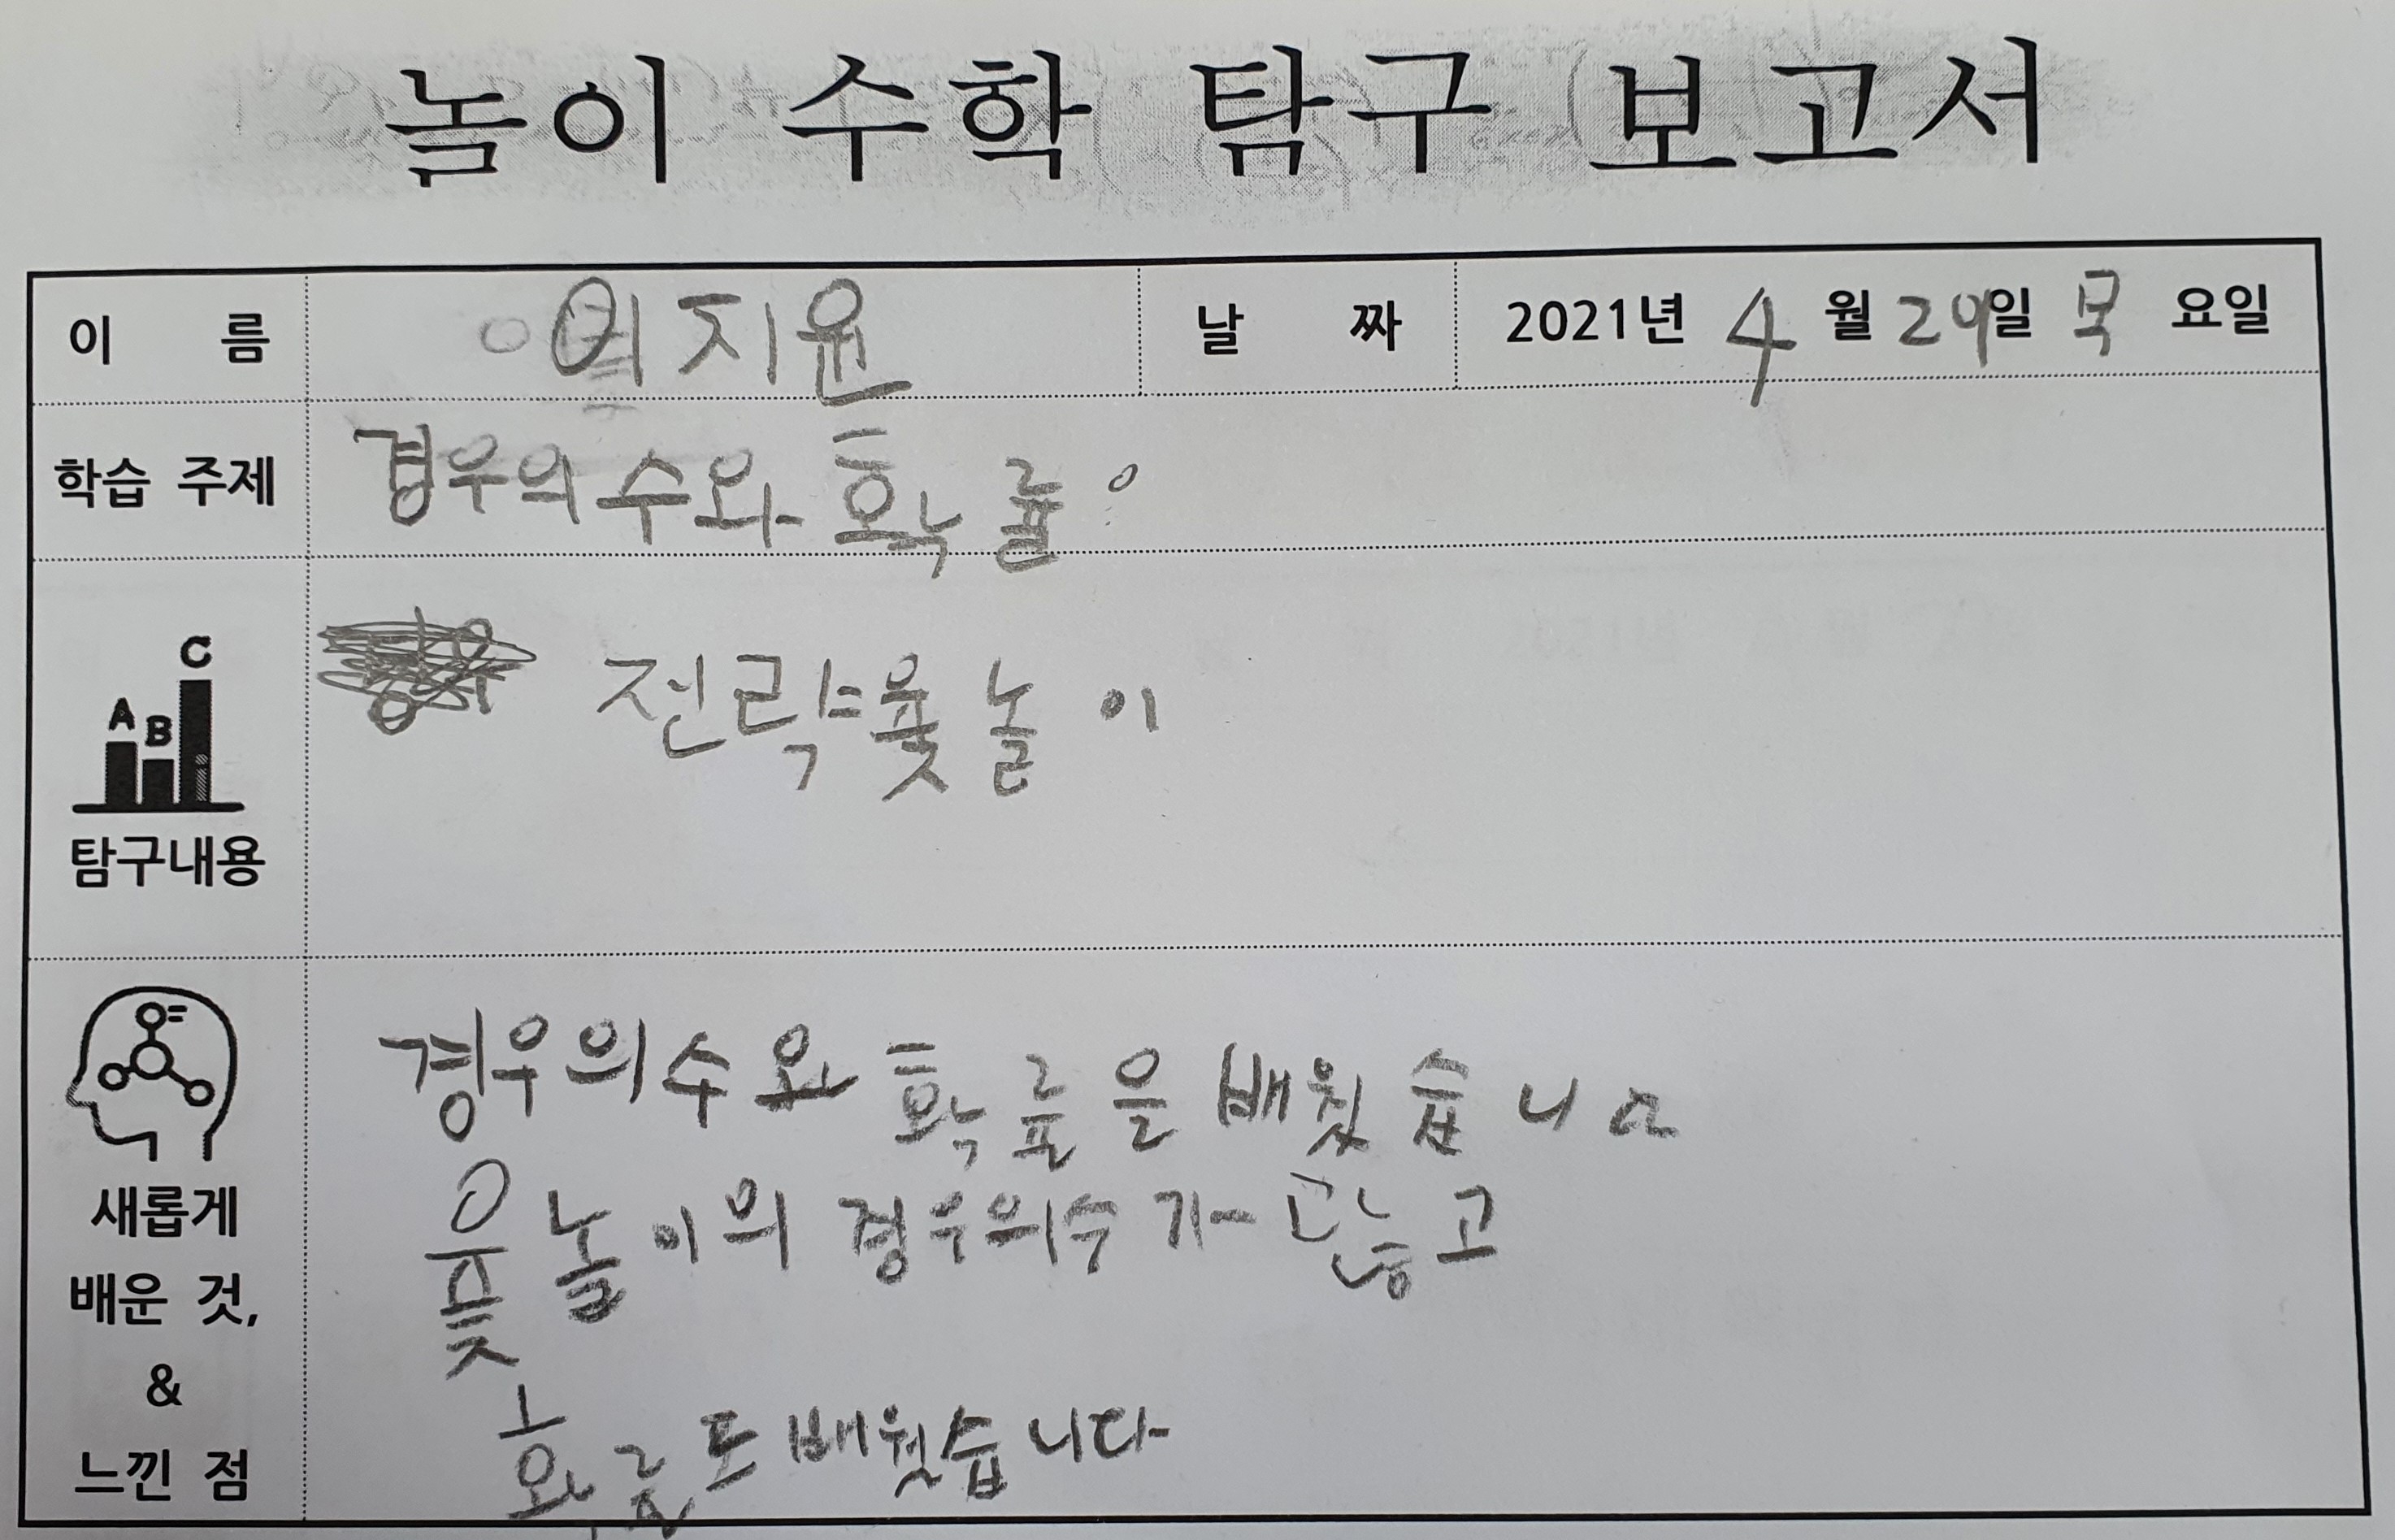 놀이 수학 탐구 보고서
이 름 이지윤 날 짜 2021년 4월 29일 목요일
학습 주제 경우의 수와 확률
C
A B
전략윷놀이
탐구내용
경우의수와 확률을 배웠습니다
윷놀이의 경우의수가 많고
확률도 배웠습니다
새롭게
배운 것,
&
느낀 점